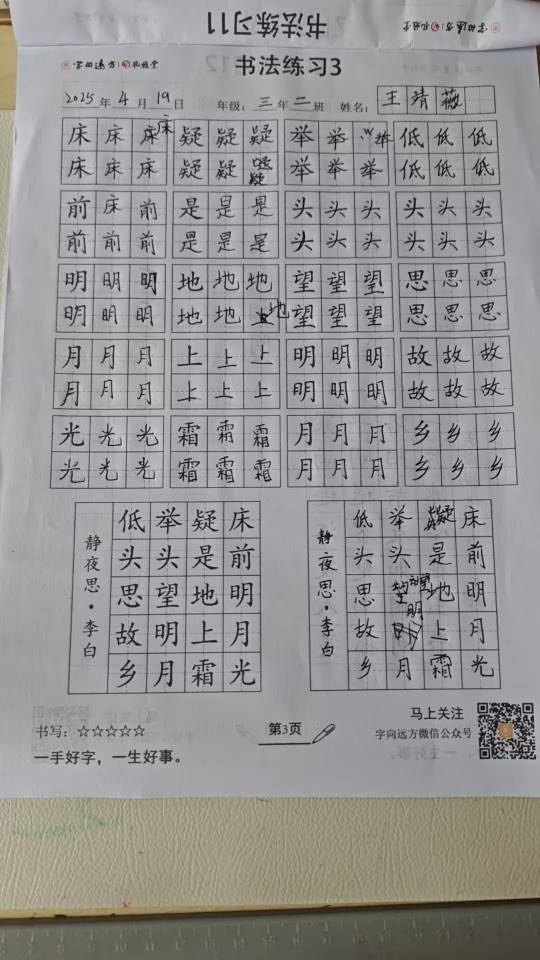 书法练习11
字向远方
书法练习3
2025年4月19日 年级：三年二班 姓名：王靖薇
床床床床 疑疑疑 举举举 低低低
床床床 疑疑疑 举举举 低低低
前床前 是是是 头头头 头头头
前前前 是是是 头头头 头头头
明明明 地地地 望望望 思思思
明明明 地地地 望望望 思思思
月月月 上上上 明明明 故故故
月月月 上上上 明明明 故故故
光光光 霜霜霜 月月月 乡乡乡
光光光 霜霜霜 月月月 乡乡乡
静夜思·李白
床前明月光
疑是地上霜
举头望明月
低头思故乡
静夜思·李白
床前明月光
疑是地上霜
举头望明月
低头思故乡
书写：☆☆☆☆☆
一手好字，一生好事。
第3页
马上关注
字向远方微信公众号